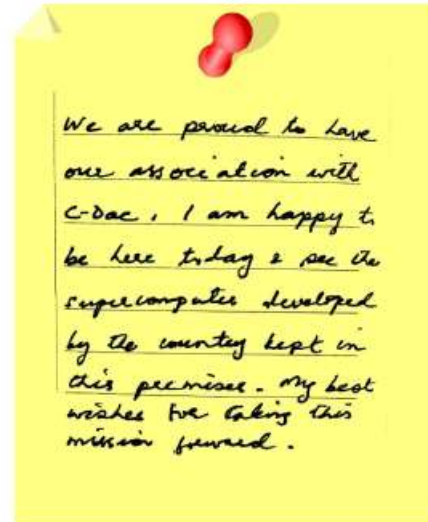 We are proud to have
our association with
C-Dac. I am happy to
be here today & see the
supercomputer developed
by the country kept in
this premises. My best
wishes for taking this
mission forward.